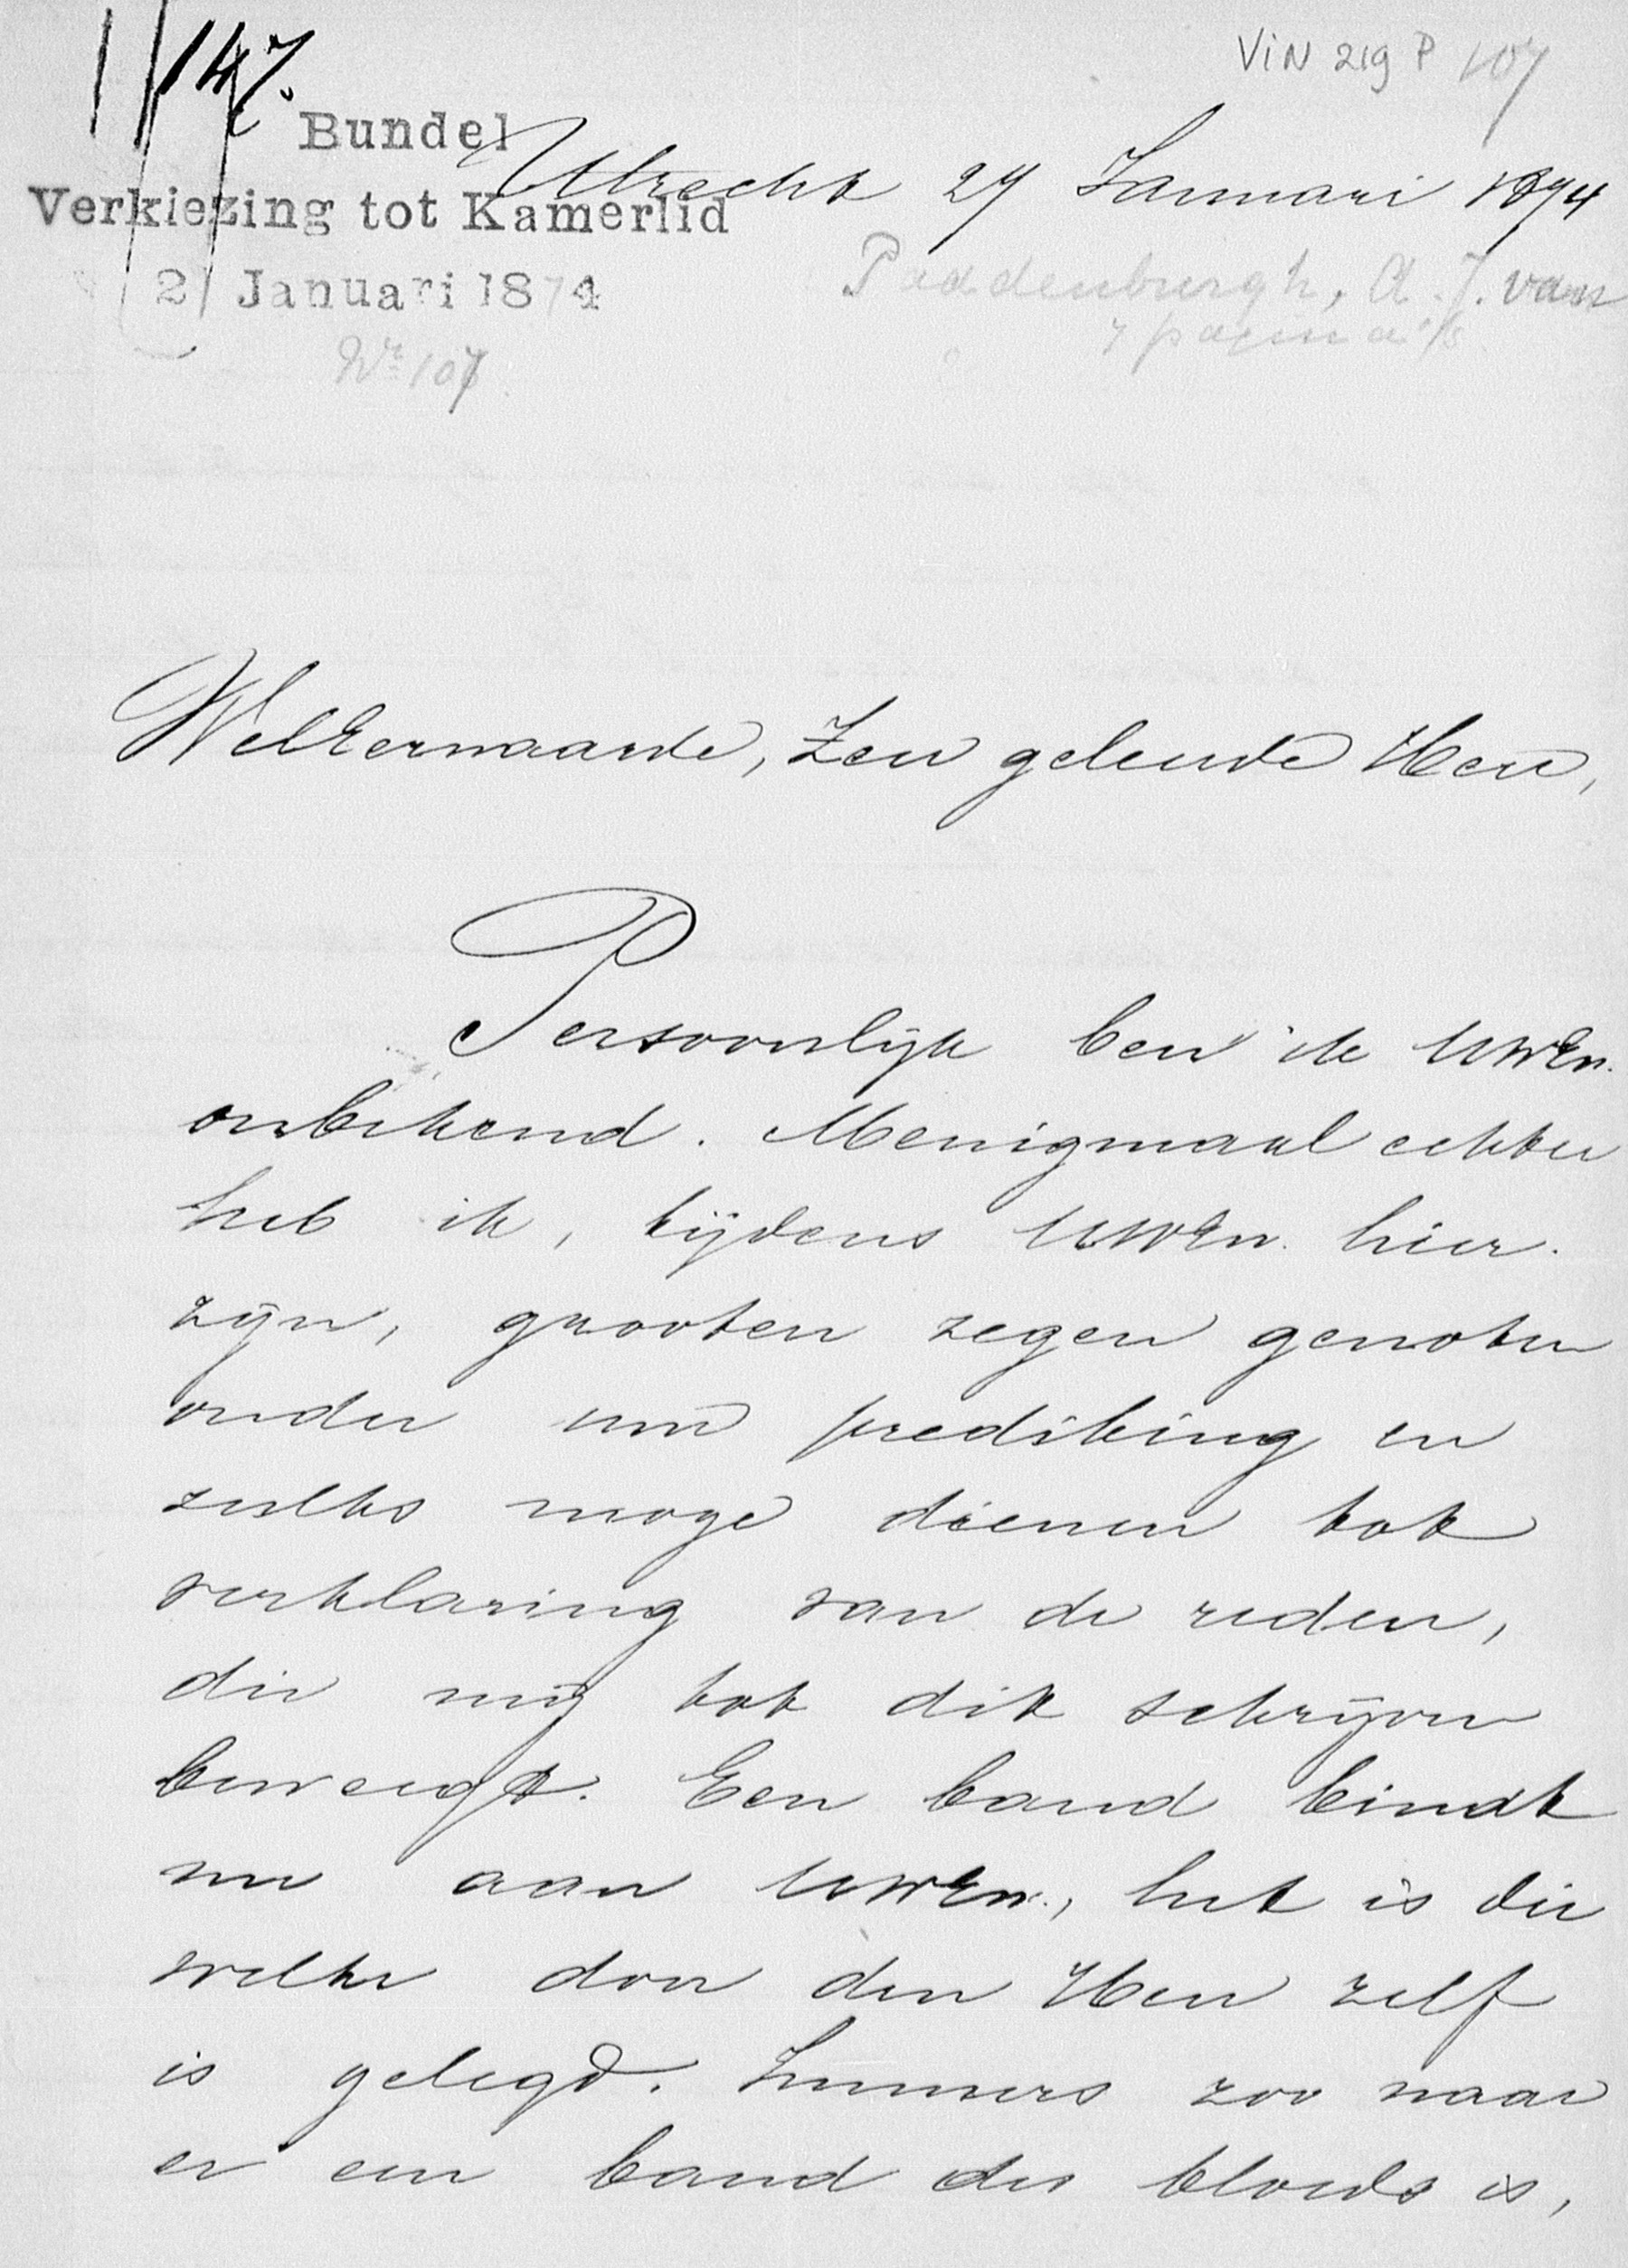 147.
ViN 219 P 107
Bundel
Utrecht 27 Januari 1874
Verkiezing tot Kamerlid
21 Januari 1874
Puddenburgh, A. J. van
7 pagina's
Nr 107
WelEerwaarde, Zeer geleerde Heer,
Persoonlijk ben ik UwEw.
onbekend. Menigmaal echter
heb ik, tijdens UwEw. hier
zijn, grooten zegen genoten
onder uw prediking en
zulks moge dienen tot
verklaring van de reden,
die mij tot dit schrijven
beweegt. Een band bindt
mij aan UwEw., het is die
welke door den Heer zelf
is gelegd. Immers zoo waar
er een band des bloeds is,